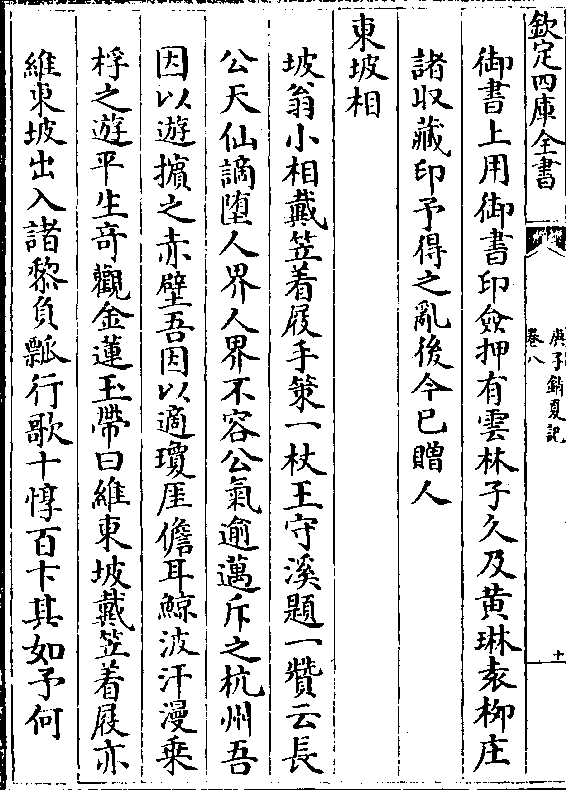 欽定四庫全書
庚子銷夏記
卷八
十
御書上用御書印僉押有雲林子久及黄琳袁柳庄
諸収藏印予得之亂後今已贈人
東坡相
坡翁小相戴笠着屐手策一杖王守溪題一贊云長
公天仙謫墮人界人界不容公氣逾邁斥之杭州吾
因以遊擯之赤壁吾因以適瓊厓儋耳鯨波汗漫乗
桴之遊平生竒觀金蓮玉帶曰維東坡戴笠着屐亦
維東坡出入諸黎負瓢行歌十惇百卞其如予何